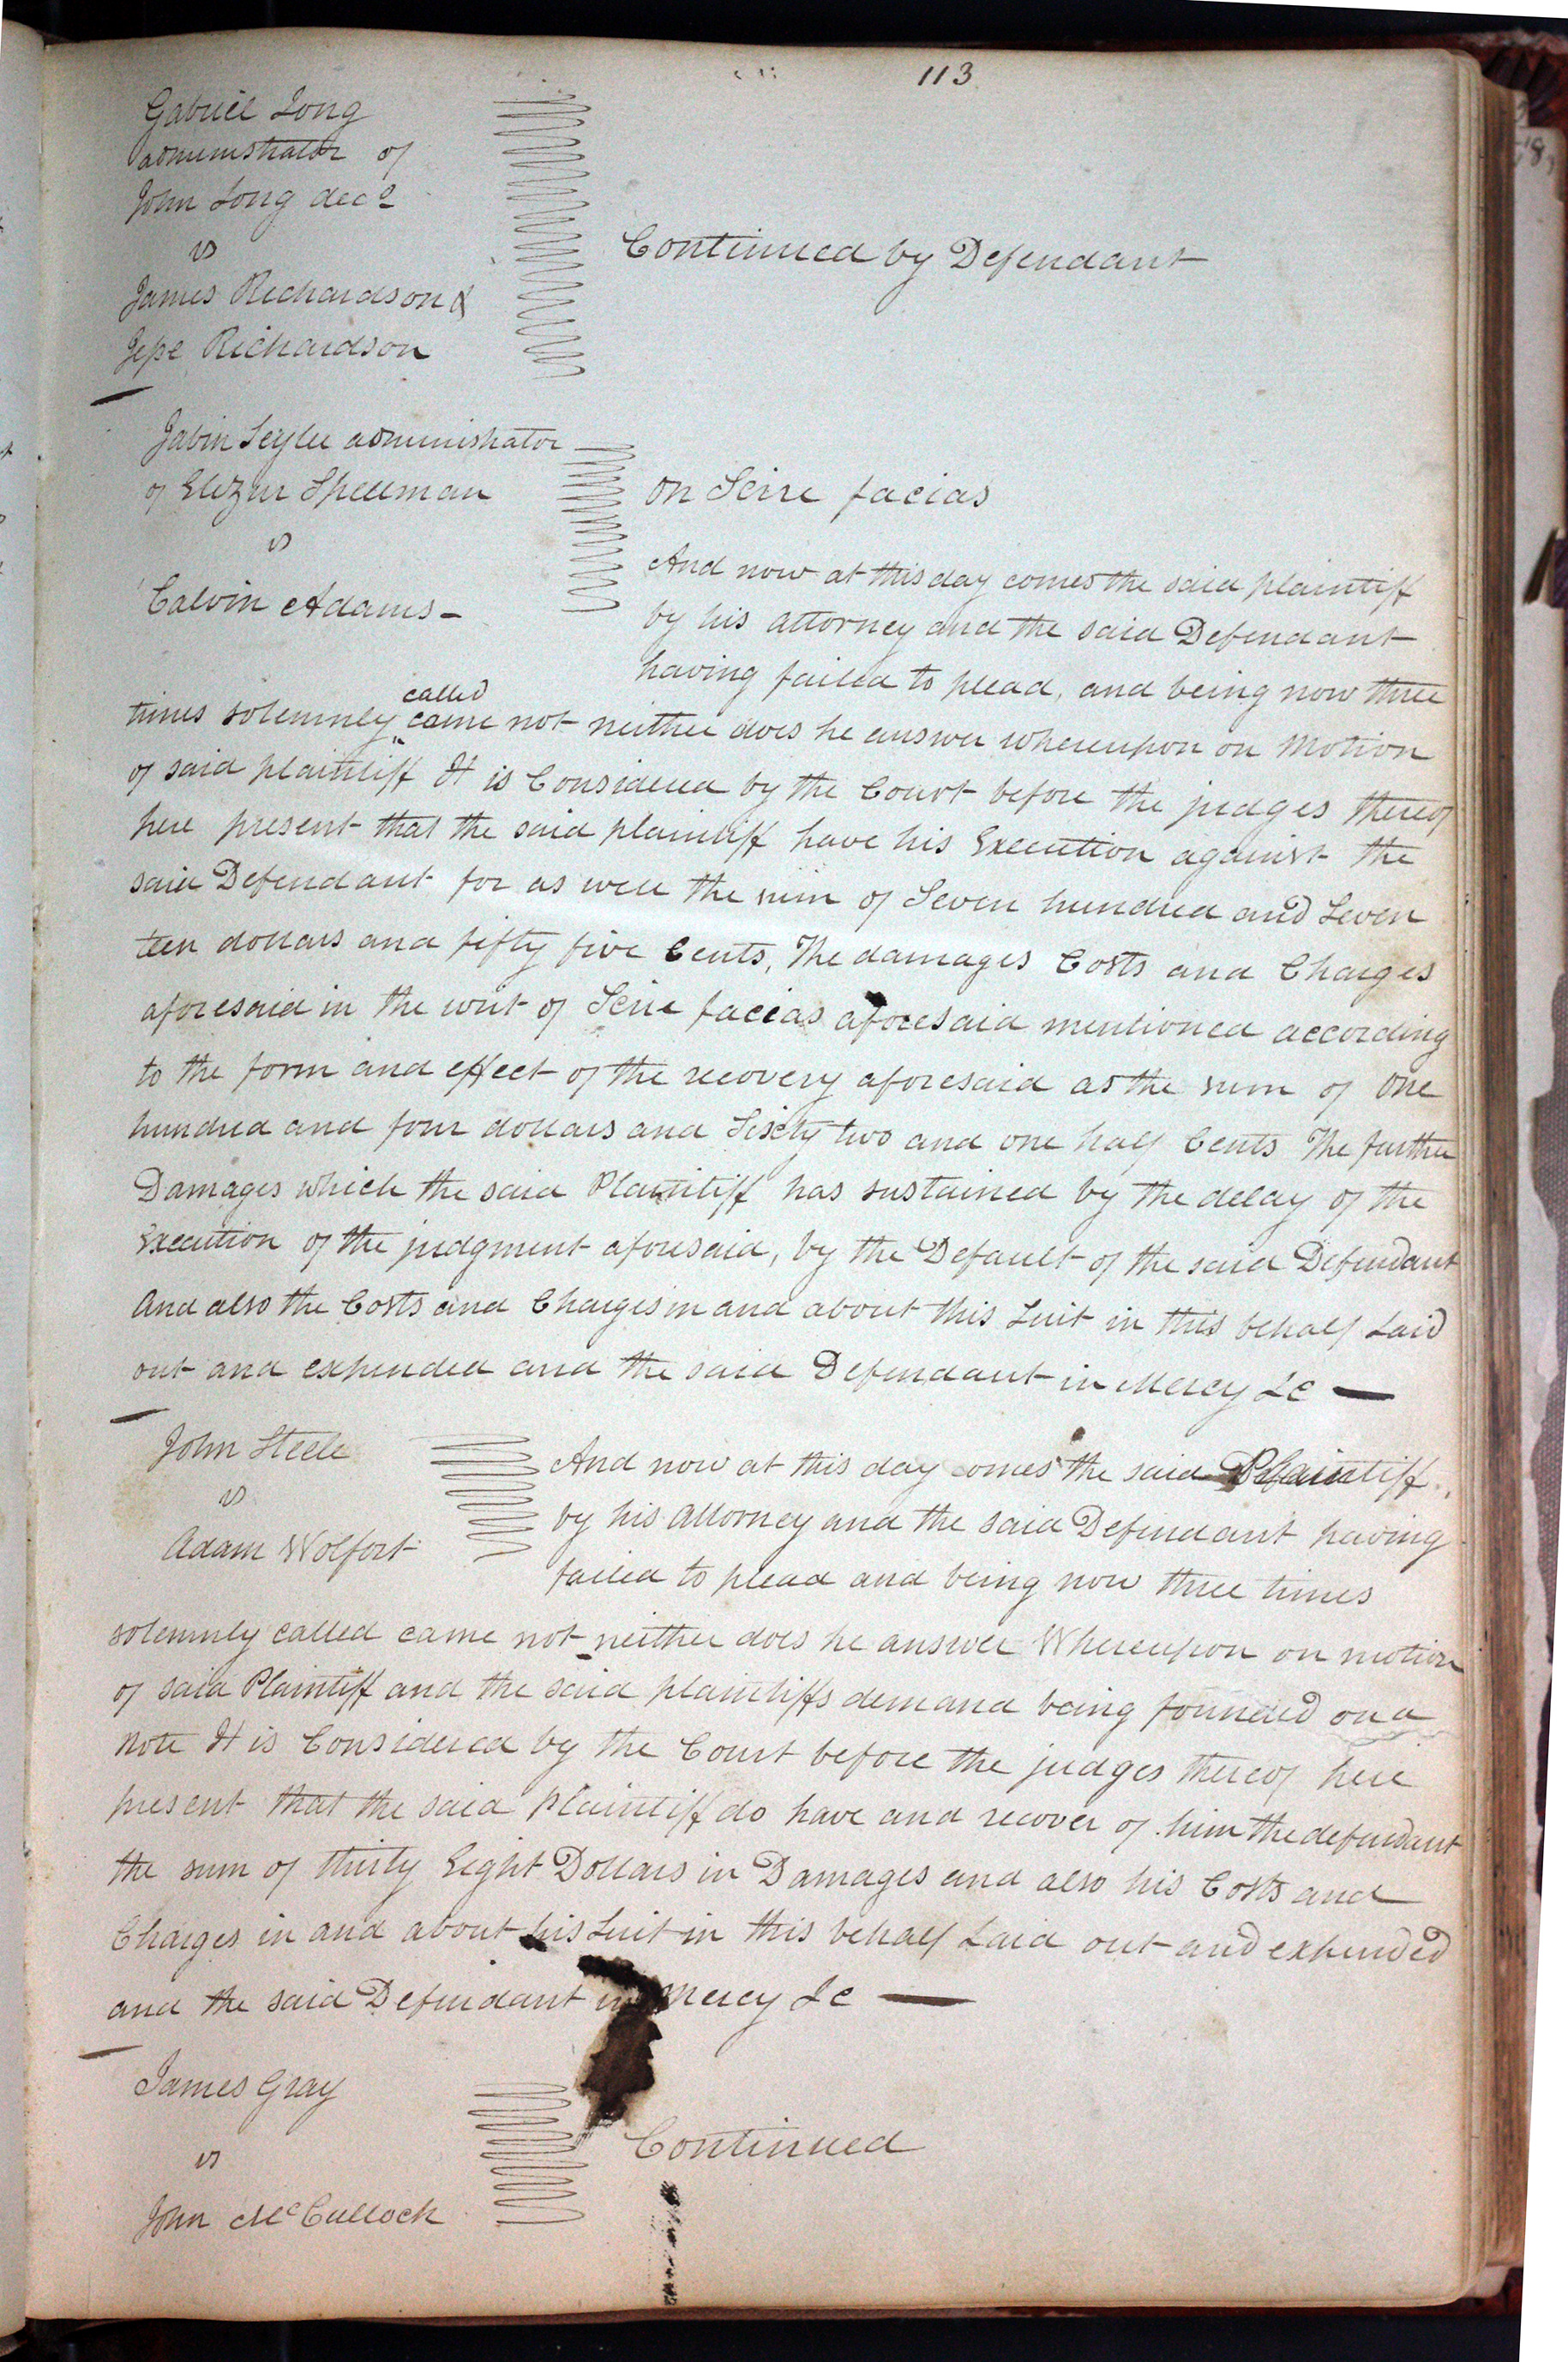 113
Gabriel Long
administrator of
John Long decd
vs
James Richardson &
Jesse Richardson
Continued by Defendant
administrator
of Elizur Spellman
vs
Calvin Adams -
On Scire facias
And now at this day comes the said plaintiff
by his attorney and the said Defendant
having failed to plead, and being now three
times solemnley called came not neither does he answer whereupon on Motion
of said plaintiff It is Considered by the Court before the judges thereof
here present that the said plaintiff have his Execution against the
said Defendant for as well the sum of Seven hundred and Seven
teen dollars and fifty five Cents, The damages Costs and Charges
aforesaid in the writ of Scire facias aforesaid mentioned according
to the form and effect of the recovery aforesaid as the sum of One
hundred and four dollars and Sixty two and one half Cents The further
Damages which the said Plaintiff has sustained by the delay of the
Execution of the judgment aforesaid, by the Default of the said Defendant
And also the Costs and Charges in and about this Suit in this behalf Laid
out and expended and the said Defendant in Mercy &c —
John Steele
vs
Adam Wolfort
And now at this day comes the said Plaintiff
by his attorney and the said Defendant having
failed to plead and being now three times
solemnley called came not neither does he answer Whereupon on motion
of said Plaintiff and the said plaintiffs demand being founded on a
note It is Considered by the Court before the judges thereof here
present that the said plaintiff do have and recover of him the defendant
the sum of thirty Eight Dollars in Damages and also his Costs and
Charges in and about his Suit in this behalf Laid out and expended
and the said Defendant in Mercy &c —
James Gray
vs
John McCullock
Continued